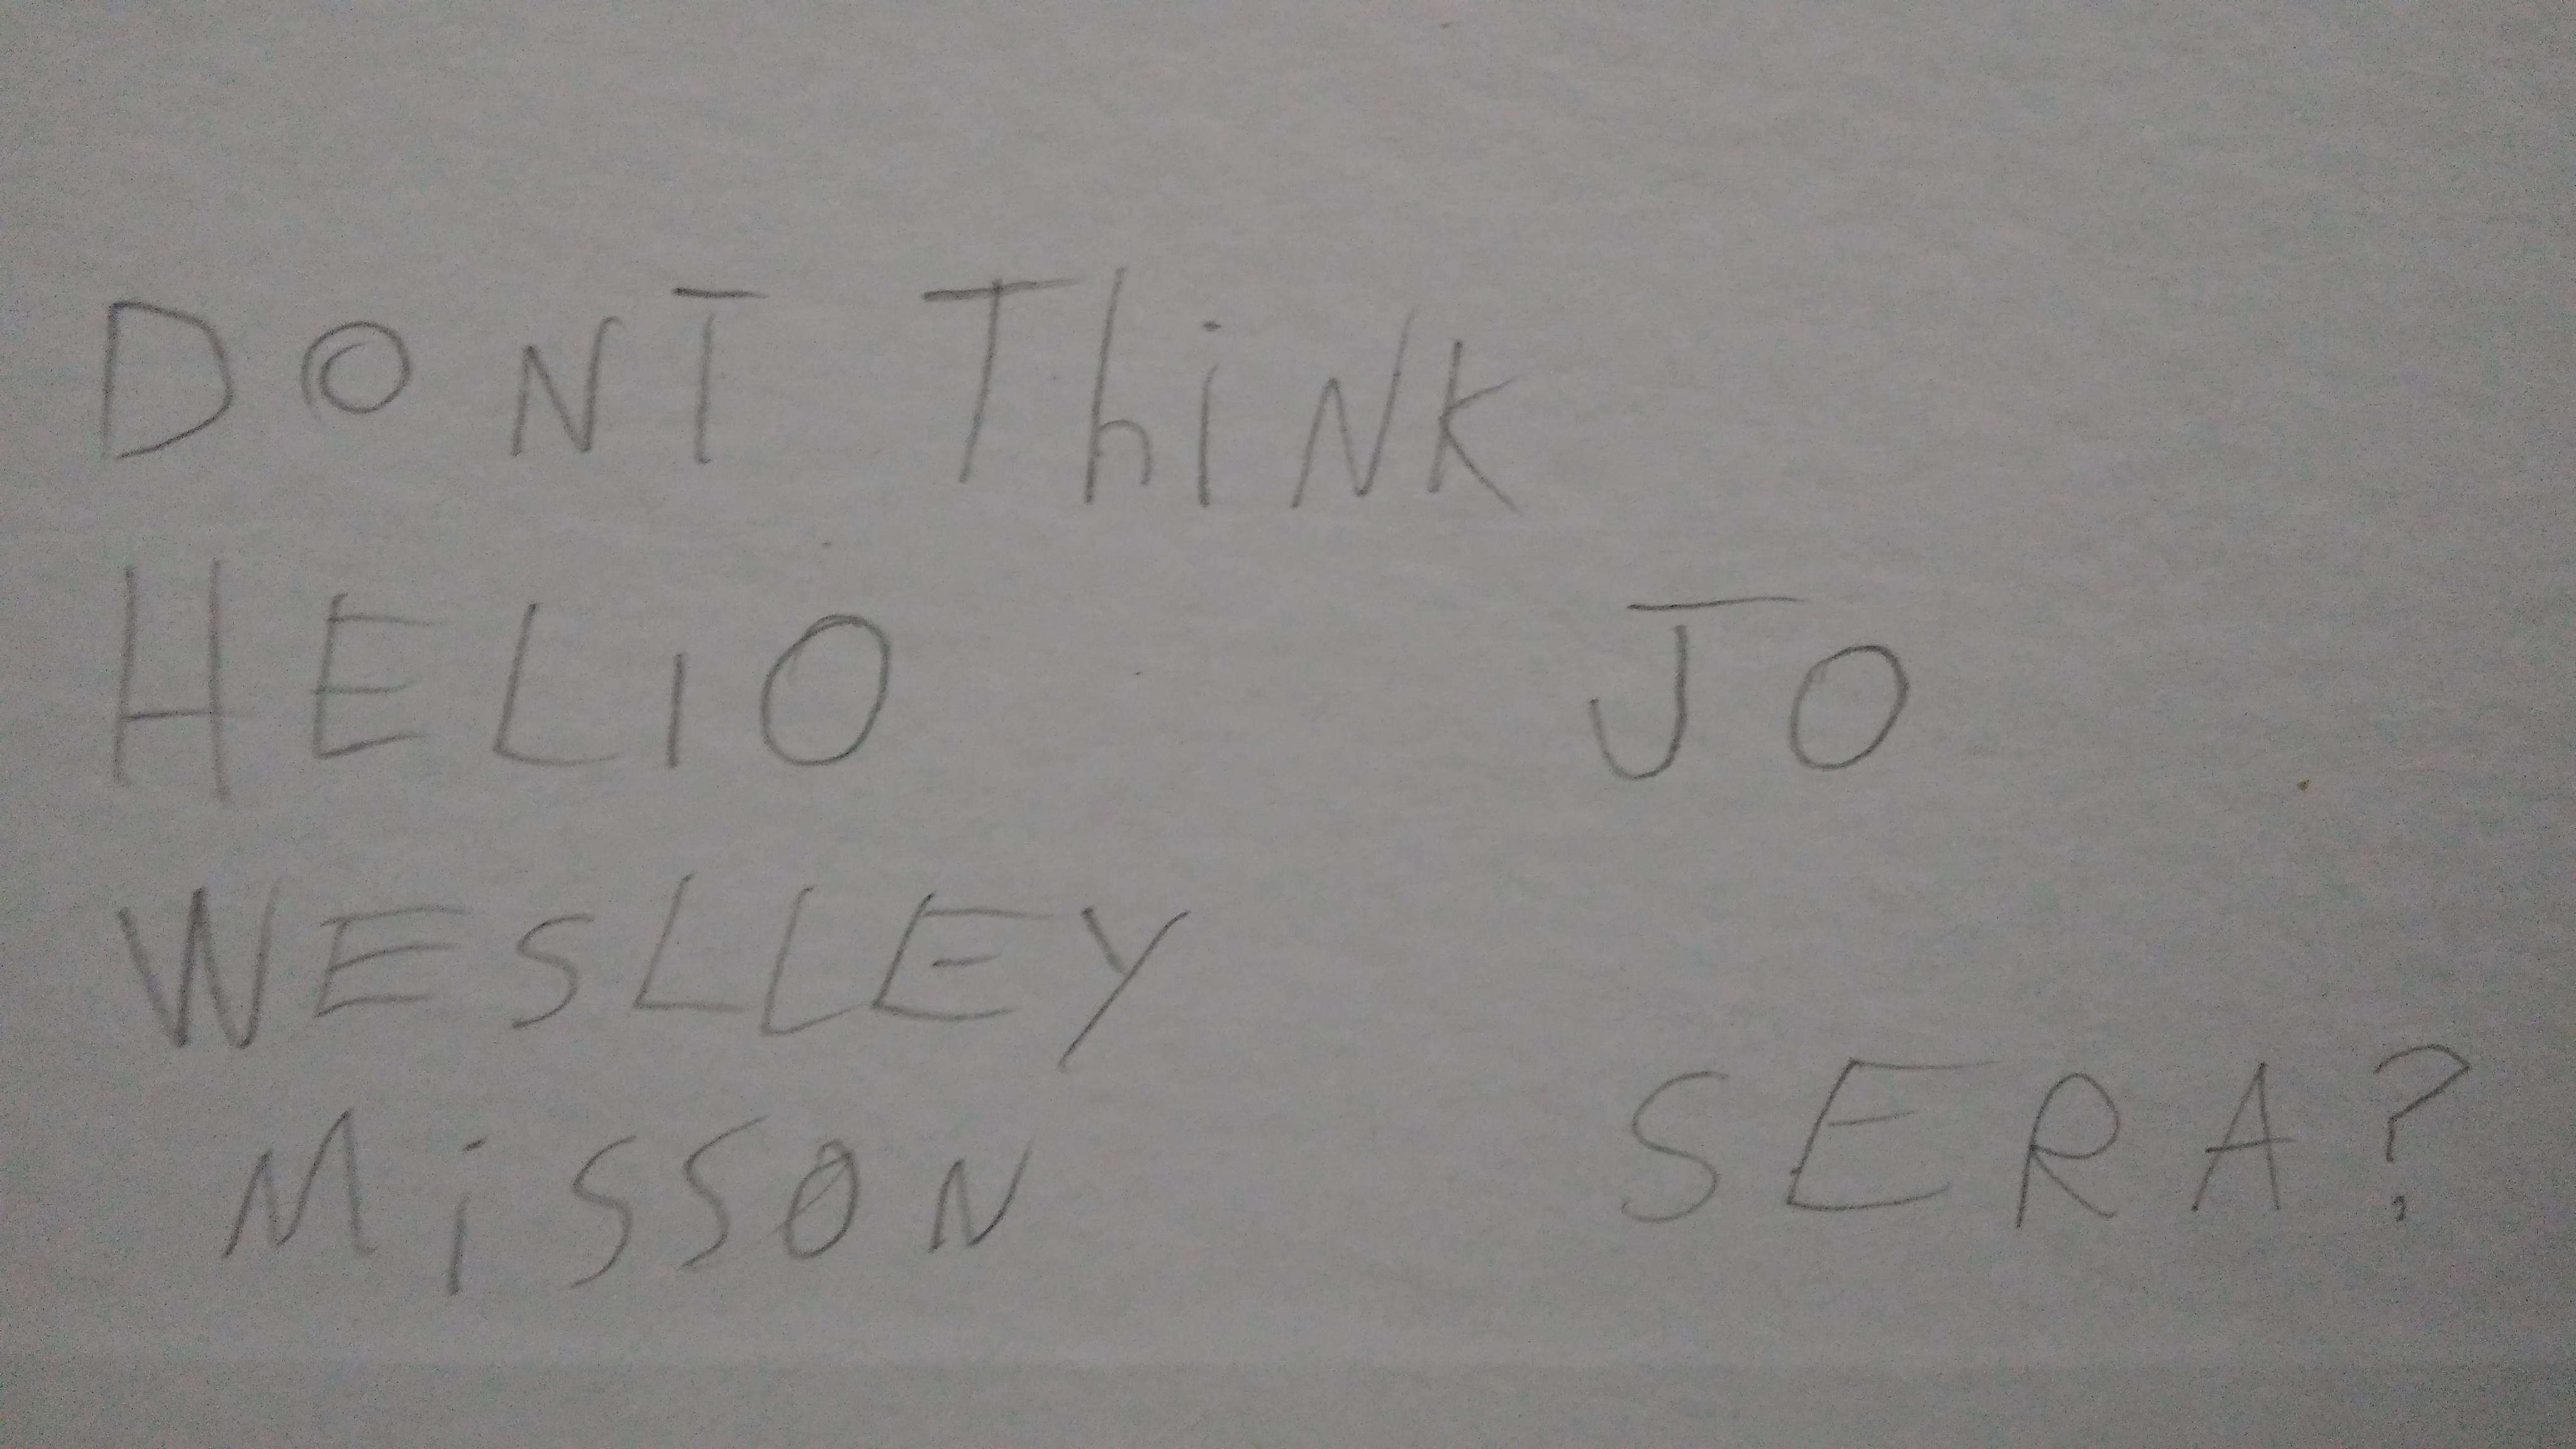 DONT ThiNK
HELIO JO
WESLLEY
MiSSON SERA?